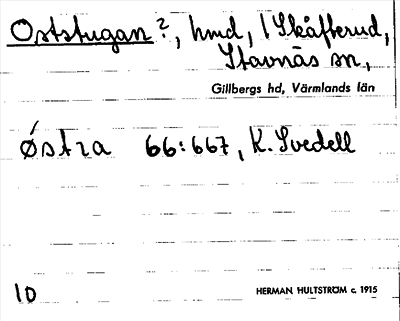 Oststugan ?, hmd, 1 Skåfterud,
Stavnäs sn,
Gillbergs hd, Värmlands län
ǿstra 66:667, K. Svedell
10
HERMAN HULTSTRÖM c. 1915